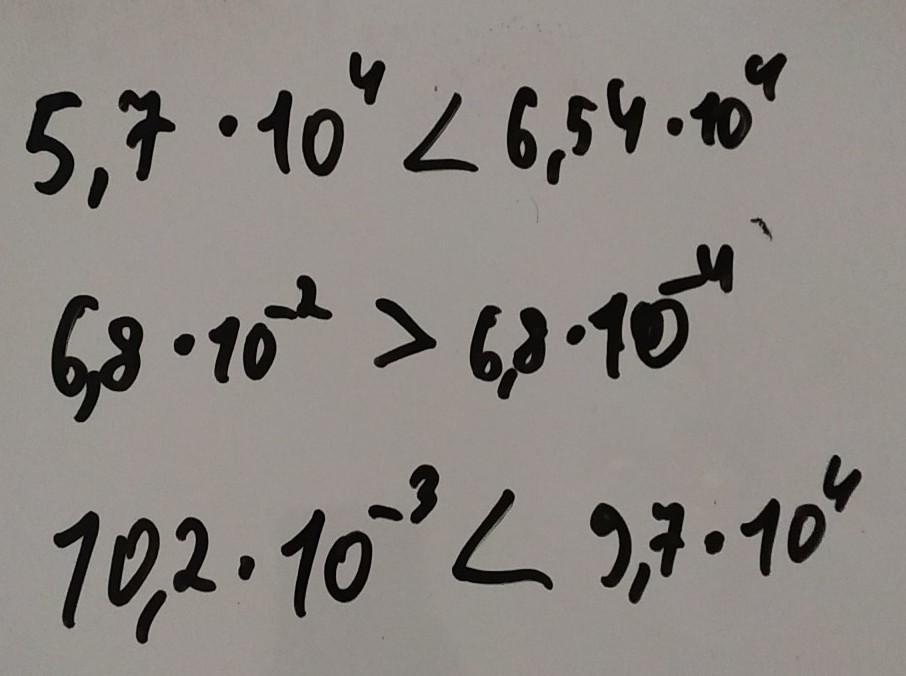 5,7 · 10⁴ < 6,54 · 10⁴
6,8 · 10⁻² > 6,8 · 10⁻⁴
10,2 · 10⁻³ < 9,7 · 10⁴